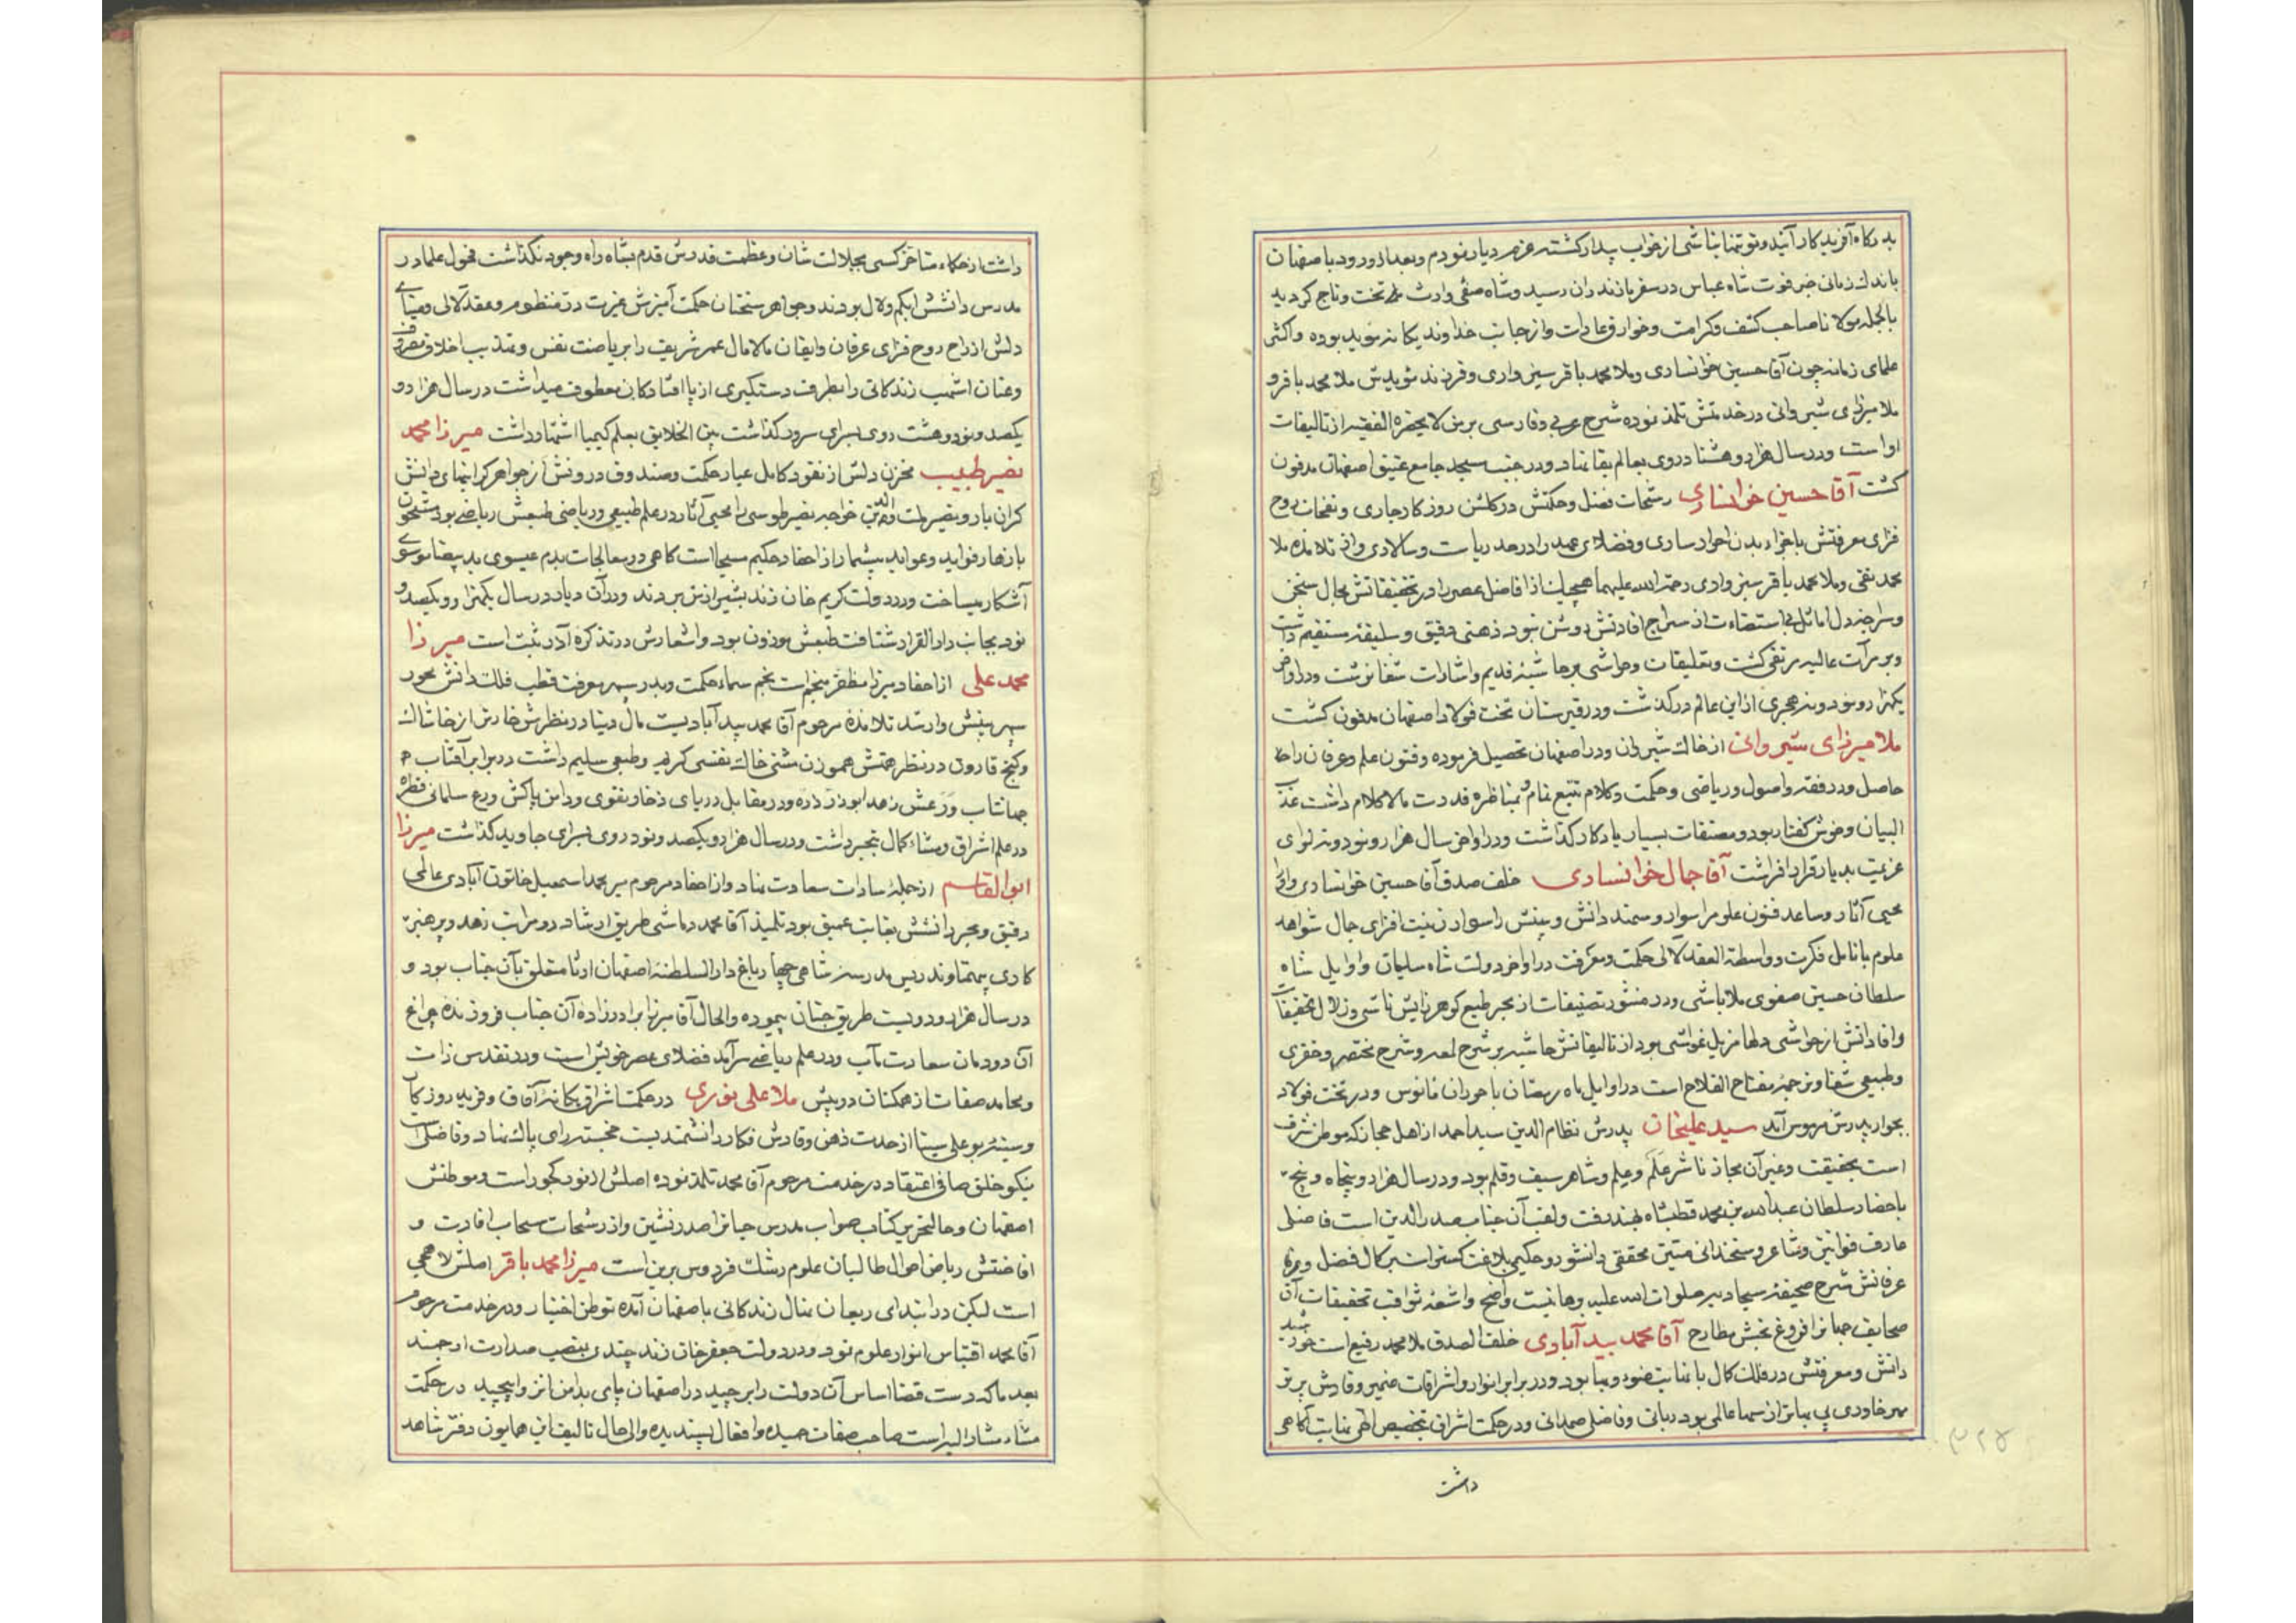 بدرکاه آفریدکار آئید و توتمنا بنا شی از خواب بیدار کشته عزم دیار نمودم و بعد از ورود باصفهان
باندک زمانی خبر فوت شاه عباس در سفر مازندران رسید و شاه صفی وارث تخت و تاج کردید
بالجمله مولانا صاحب کشف و کرامت و خوارق عادات و از جانب خداوند یکانه مؤید بوده و اکثر
علمای زمانه چون آقا حسین خوانساری و ملا محمد باقر سبزواری و فرزند مؤیدش ملا محمد باقر و
ملا میرزای شیروانی در خدمتش تلمذ نموده شرح عربی و فارسی بر من لا یحضره الفقیه از تالیفات
او است و در سال هزار و هشتاد روی بعالم بقا نهاد و در جنب مسجد جامع عتیق اصفهان مدفون
کشت آقا حسین خوانساری رشحات فضل و حکمتش در کلشن روزکار جاری و نفحات روح
فزای معرفتش باجزاء بدن احرار ساری و فضلای عهد را در حد ریاست و سالاری و از تلامذه ملا
محمد تقی و ملا محمد باقر سبزواری رحمة الله علیهما هیچیک از افاضل عصر را در تحقیقاتش مجال سخن
و سراچه دل اماثل بی استضاءت از سراج افادتش روشن نبود ذهنی دقیق و سلیقه مستقیم داشت
و بر مرآت عالیه مرتقی کشت و تعلیقات و حواشی بر حاشیه قدیم و اشارات شفا نوشت و در اواخر
یکهزار و نود و نه هجری از این عالم درکذشت و در قبرستان تخت فولاد اصفهان مدفون کشت
ملا میرزای شیروانی از خاک شیروان و در اصفهان تحصیل فرموده و فنون علم و عرفان را
حاصل و در فقه و اصول و ریاضی و حکمت و کلام تتبع تمام و بمناظره قدرت مالاکلام داشت عذب
البیان و خوش کفتار بود و مصنفات بسیار یادکار کذاشت و در اواخر سال هزار و نود و نه لوای
عزیمت بدیار قرار افراشت آقا جمال خوانساری خلف صدق آقا حسین خوانساری و او را
محیی آثار و ساعد فنون علوم را سوار و سمند دانش و بینش را سوار زینت افزای جمال شواهد
علوم بانامل فکرت و واسطة العقد لآلی حکمت و معرفت در اواخر دولت شاه سلیمان و اوایل شاه
سلطان حسین صفوی ملاباشی و در منثور تصنیفات از بحر طبع کوهر زایش ناشی و زلال تحقیقات
و افاداتش از حواشی دلها مزیل غواشی بود از تالیفاتش حاشیه بر شرح لمعه و شرح مختصر و خفری
و طبیعی شفا و ترجمه مفتاح الفلاح است در اوایل ماه رمضان با حوران مانوس و در تخت فولاد
بجوار پدرش مرموس آمد سید علیخان پدرش نظام الدین سید احمد از اهل حجاز که موطن شرف
است بحقیقت و غیر آن مجاز ناشر عَلَم و علم و شاهر سیف و قلم بود و در سال هزار و پنجاه و پنج
باحضار سلطان عبدالله بن محمد قطبشاه بهند رفت و لقب آن جناب صدر الدین است فاضلی
عارف قوانین و شاعر و سخندانی متین محققی دانشور و حکیمی بلاغت کستر است بر کمال فضل و
عرفانش شرح صحیفه سجادیه صلوات الله علیه برهانیست واضح و اشعه ثواقب تحقیقات آن
صحایف جهانرا فروغ بخش مطارح آقا محمد بیدآبادی خلف الصدق ملا محمد رفیع است خورشید
دانش و معرفتش در فلک کمال با نهایت ضوء و بها بود و در برابر انوار و اشراقات ضمیر وقادش پرتو
مهر خاوری بی بهاتر از سها عالمی بود ربانی و فاضلی صمدانی و در حکمت اشراق بتخصیص الهی نهایت آکاهی
داشت
داشت از حکماء متاخر کسی بجلالت شان و عظمت قدرش قدم بشاه راه وجود نکذاشت فحول علما در
مدرس دانشش ابکم و لال بودند و جواهر سخنان حکمت آمیزش غیرت در منظوم و عقد لآلی و مینای
دلش از راح روح فزای عرفان و ایقان مالامال عمر شریف را بریاضت نفس و تهذیب اخلاق مصروف
و عنان اشهب زندکانی را بطرف دستکیری از پا افتادکان معطوف میداشت در سال هزار و
یکصد و نود و هشت روی بسرای سرور کذاشت بین الخلایق بعلم کیمیا اشتهار داشت میرزا محمد
نصیر طبیب مخزن دلش از نقود کامل عیار حکمت و صندوق درونش از جواهر کرانبهای دانش
کران بار و نصیر ملت و الدین خواجه نصیر طوسی را محیی آثار در علم طبیعی و ریاضی طبعش ریاضی بود مشحون
بازهار فواید و عواید بیشمار از احفاد حکیم مسیحا است کاهی در معالجات بدم عیسوی ید بیضا موسوی
آشکار میساخت و در دولت کریم خان زند بشیرازش بردند و در آن دیار در سال یکهزار و یکصد و
نود بجانب دار القرار شتافت طبعش موزون بود و اشعارش در تذکره آذر ثبت است میرزا
محمد علی از احفاد میرزا مظفر منجم است نجم سماء حکمت و بدر سپهر معرفت قطب فلک دانش محور
سپهر بینش و ارشد تلامذه مرحوم آقا محمد بیدآبادیست مال دنیا در نظرش خارتر از خاشاک
و کنج قارون در نظر همتش هموزن مشتی خاک نفسی کریم و طبعی سلیم داشت در برابر آفتاب
جهانتاب وَرَعش زهد ابوذر ذره و در مقابل دریای ذخار تقوی و دامن پاکش ورع سلمانی قطره
در علم اشراق و مشاء کمال تبحر داشت و در سال هزار و یکصد و نود روی بسرای جاوید کذاشت میرزا
ابوالقاسم از جمله سادات سعادت نهاد و از احفاد مرحوم میر محمد اسمعیل خاتون آبادی عالمی
دقیق و بحر دانشش بغایت عمیق بود تلمیذ آقا محمد و ماشی طریق ارشاد در مراتب زهد و پرهیز
کاری بیهمتا و تدریس مدرسه شاهی چهارباغ دار السلطنه اصفهان ارثا متعلق بآن جناب بود و
در سال هزار و دویست طریق جنان پیموده و الحال آقا میرزا برادرزاده آن جناب فروزنده چراغ
آن دودمان سعادت مآب و در علم ریاضی سرآمد فضلای عصر خویش است و در تقدس ذات
و محامد صفات از همکنان در پیش ملا علی نوری در حکمت اشراق یکانه آفاق و فرید روزکار
و سینه بوعلی سینا از حدت ذهن وقادش فکار دانشمندیست خجسته رای پاک نهاد و فاضلی است
نیکو خلق صافی اعتقاد در خدمت مرحوم آقا محمد تلمذ نموده اصلش از نور کجور است و موطنش
اصفهان و حال تحریر کتاب صواب مدرس جهانرا صدرنشین و از رشحات سحاب افادت و
افاضتش ریاض احوال طالبان علوم رشک فردوس برین است میرزا محمد باقر اصلش لاهیجی
است لیکن در ابتدای ریعان نهال زندکانی باصفهان آمده توطن اختیار و در خدمت مرحوم
آقا محمد اقتباس انوار علوم نمود و در دولت جعفر خان زند چندی بمنصب صدارت ارجمند
بعد ما که دست قضا اساس آن دولت را برچید در اصفهان پای بدامن انزوا پیچید در حکمت
مشاء مشار الیه است صاحب صفات حمیده و افعال پسندیده و الی حال تالیف این همایون دفتر شاهد
۳۲۵